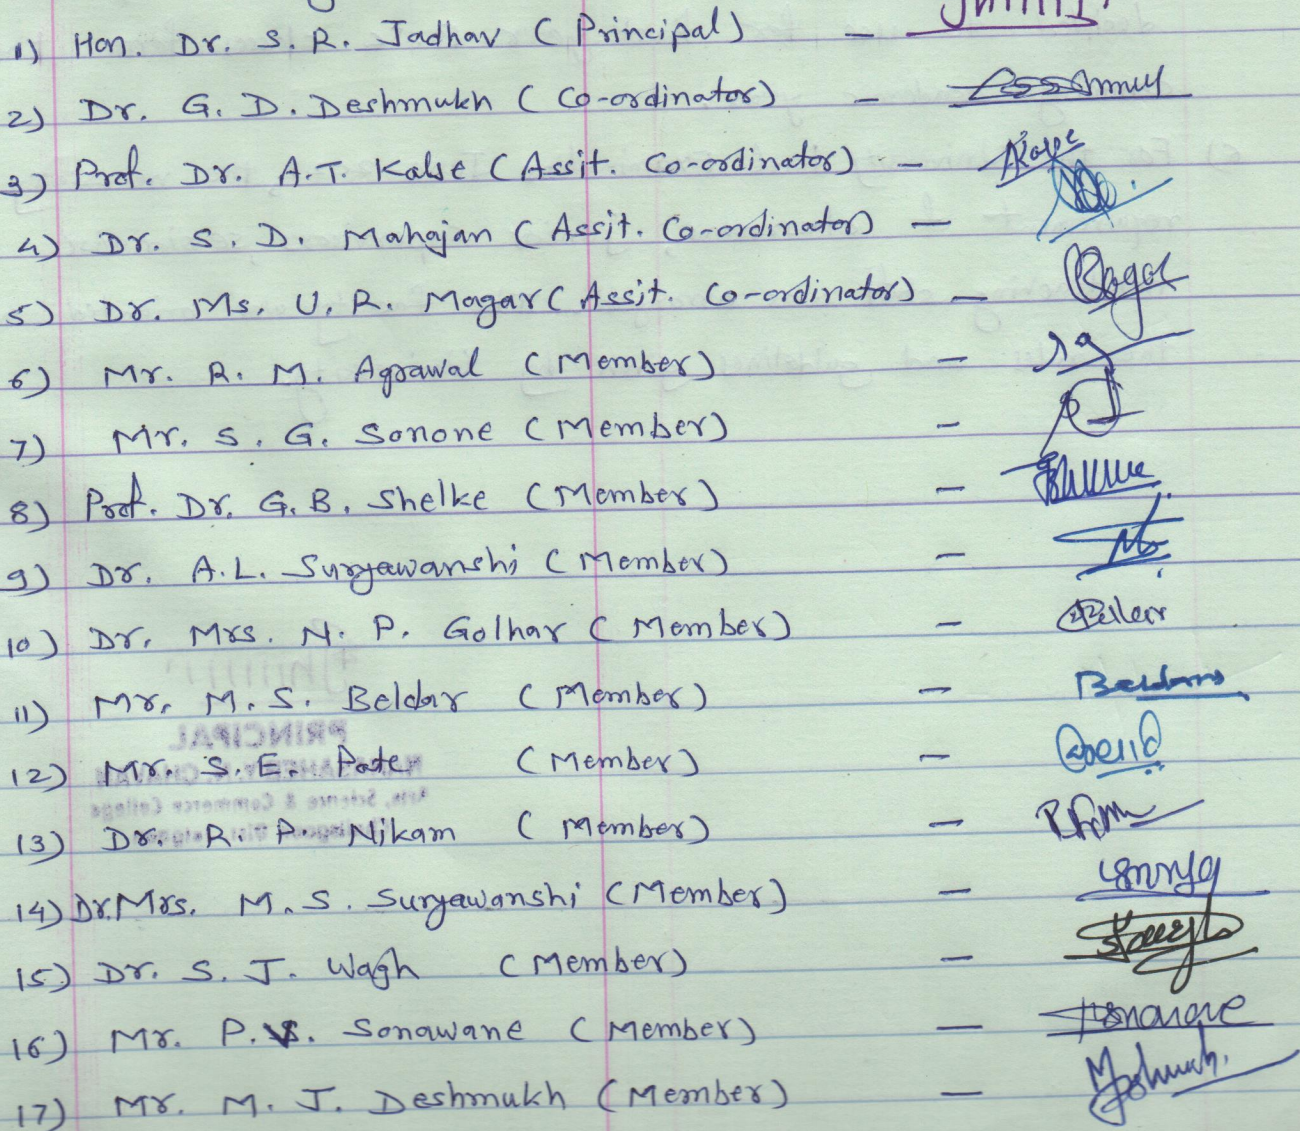 1) Hon. Dr. S. R. Jadhav (Principal) –
2) Dr. G. D. Deshmukh (Co-ordinator) –
3) Prof. Dr. A.T. Kalse (Assit. Co-ordinator) –
4) Dr. S. D. Mahajan (Assit. Co-ordinator) –
5) Dr. Ms. U. R. Magar (Assit. Co-ordinator) –
6) Mr. R. M. Agrawal (Member) –
7) Mr. S. G. Sonone (Member) –
8) Prof. Dr. G. B. Shelke (Member) –
9) Dr. A.L. Suryawanshi (Member) –
10) Dr. Mrs. N. P. Golhar (Member) –
11) Mr. M. S. Beldar (Member) – Beldar
12) Mr. S. E. Pate (Member) –
13) Dr. R. P. Nikam (Member) –
14) Dr. Mrs. M. S. Suryawanshi (Member) –
15) Dr. S. J. Wagh (Member) –
16) Mr. P. V. Sonawane (Member) –
17) Mr. M. J. Deshmukh (Member) –
PRINCIPAL
Arts, Science & Commerce College